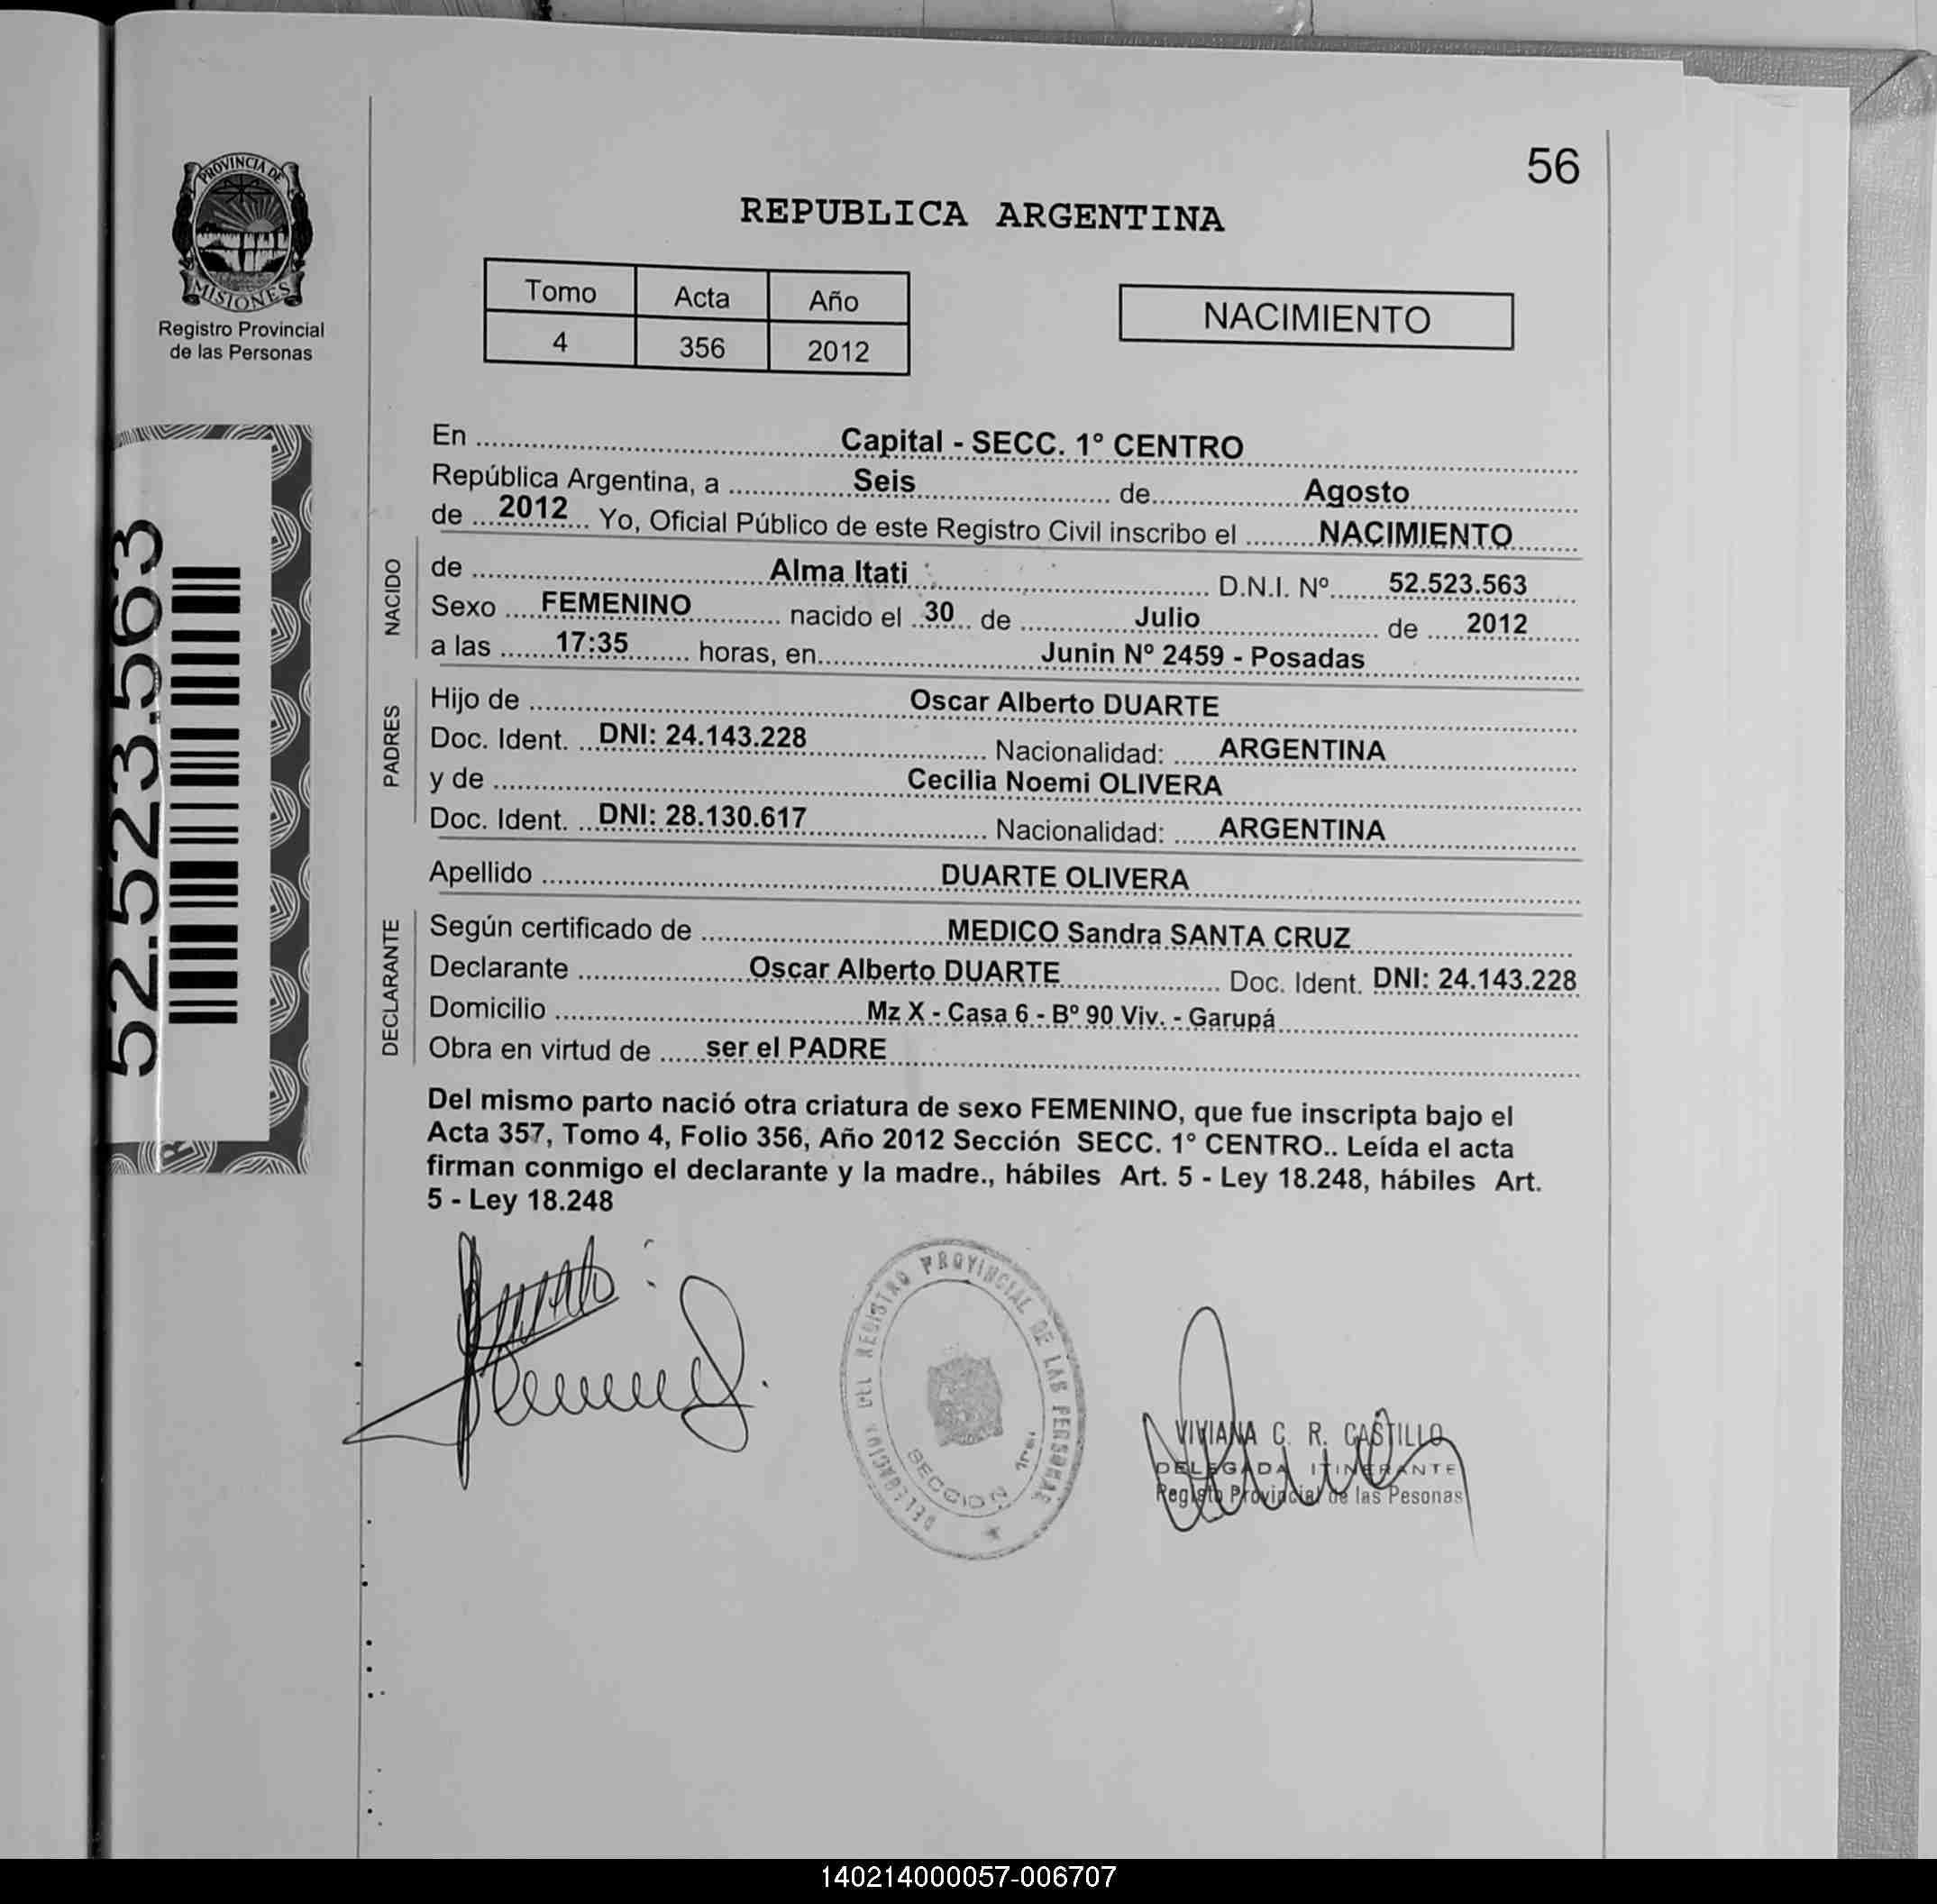 56
PROVINCIA DE
MISIONES
Registro Provincial
de las Personas
REPUBLICA ARGENTINA
Tomo Acta Año
4 356 2012
NACIMIENTO
52.523.563
En Capital - SECC. 1º CENTRO
República Argentina, a Seis de Agosto
de 2012 Yo, Oficial Público de este Registro Civil inscribo el NACIMIENTO
NACIDO
de Alma Itati D.N.I. Nº 52.523.563
Sexo FEMENINO nacido el 30 de Julio de 2012
a las 17:35 horas, en Junin Nº 2459 - Posadas
PADRES
Hijo de Oscar Alberto DUARTE
Doc. Ident. DNI: 24.143.228 Nacionalidad: ARGENTINA
y de Cecilia Noemi OLIVERA
Doc. Ident. DNI: 28.130.617 Nacionalidad: ARGENTINA
Apellido DUARTE OLIVERA
DECLARANTE
Según certificado de MEDICO Sandra SANTA CRUZ
Declarante Oscar Alberto DUARTE Doc. Ident. DNI: 24.143.228
Domicilio Mz X - Casa 6 - Bº 90 Viv. - Garupá
Obra en virtud de ser el PADRE
Del mismo parto nació otra criatura de sexo FEMENINO, que fue inscripta bajo el
Acta 357, Tomo 4, Folio 356, Año 2012 Sección SECC. 1º CENTRO.. Leída el acta
firman conmigo el declarante y la madre., hábiles Art. 5 - Ley 18.248, hábiles Art.
5 - Ley 18.248
DELEGACION DEL REGISTRO PROVINCIAL DE LAS PERSONAS
SECCION 1ra.
VIVIANA C. R. CASTILLO
DELEGADA ITINERANTE
Registo Provincial de las Pesonas
140214000057-006707